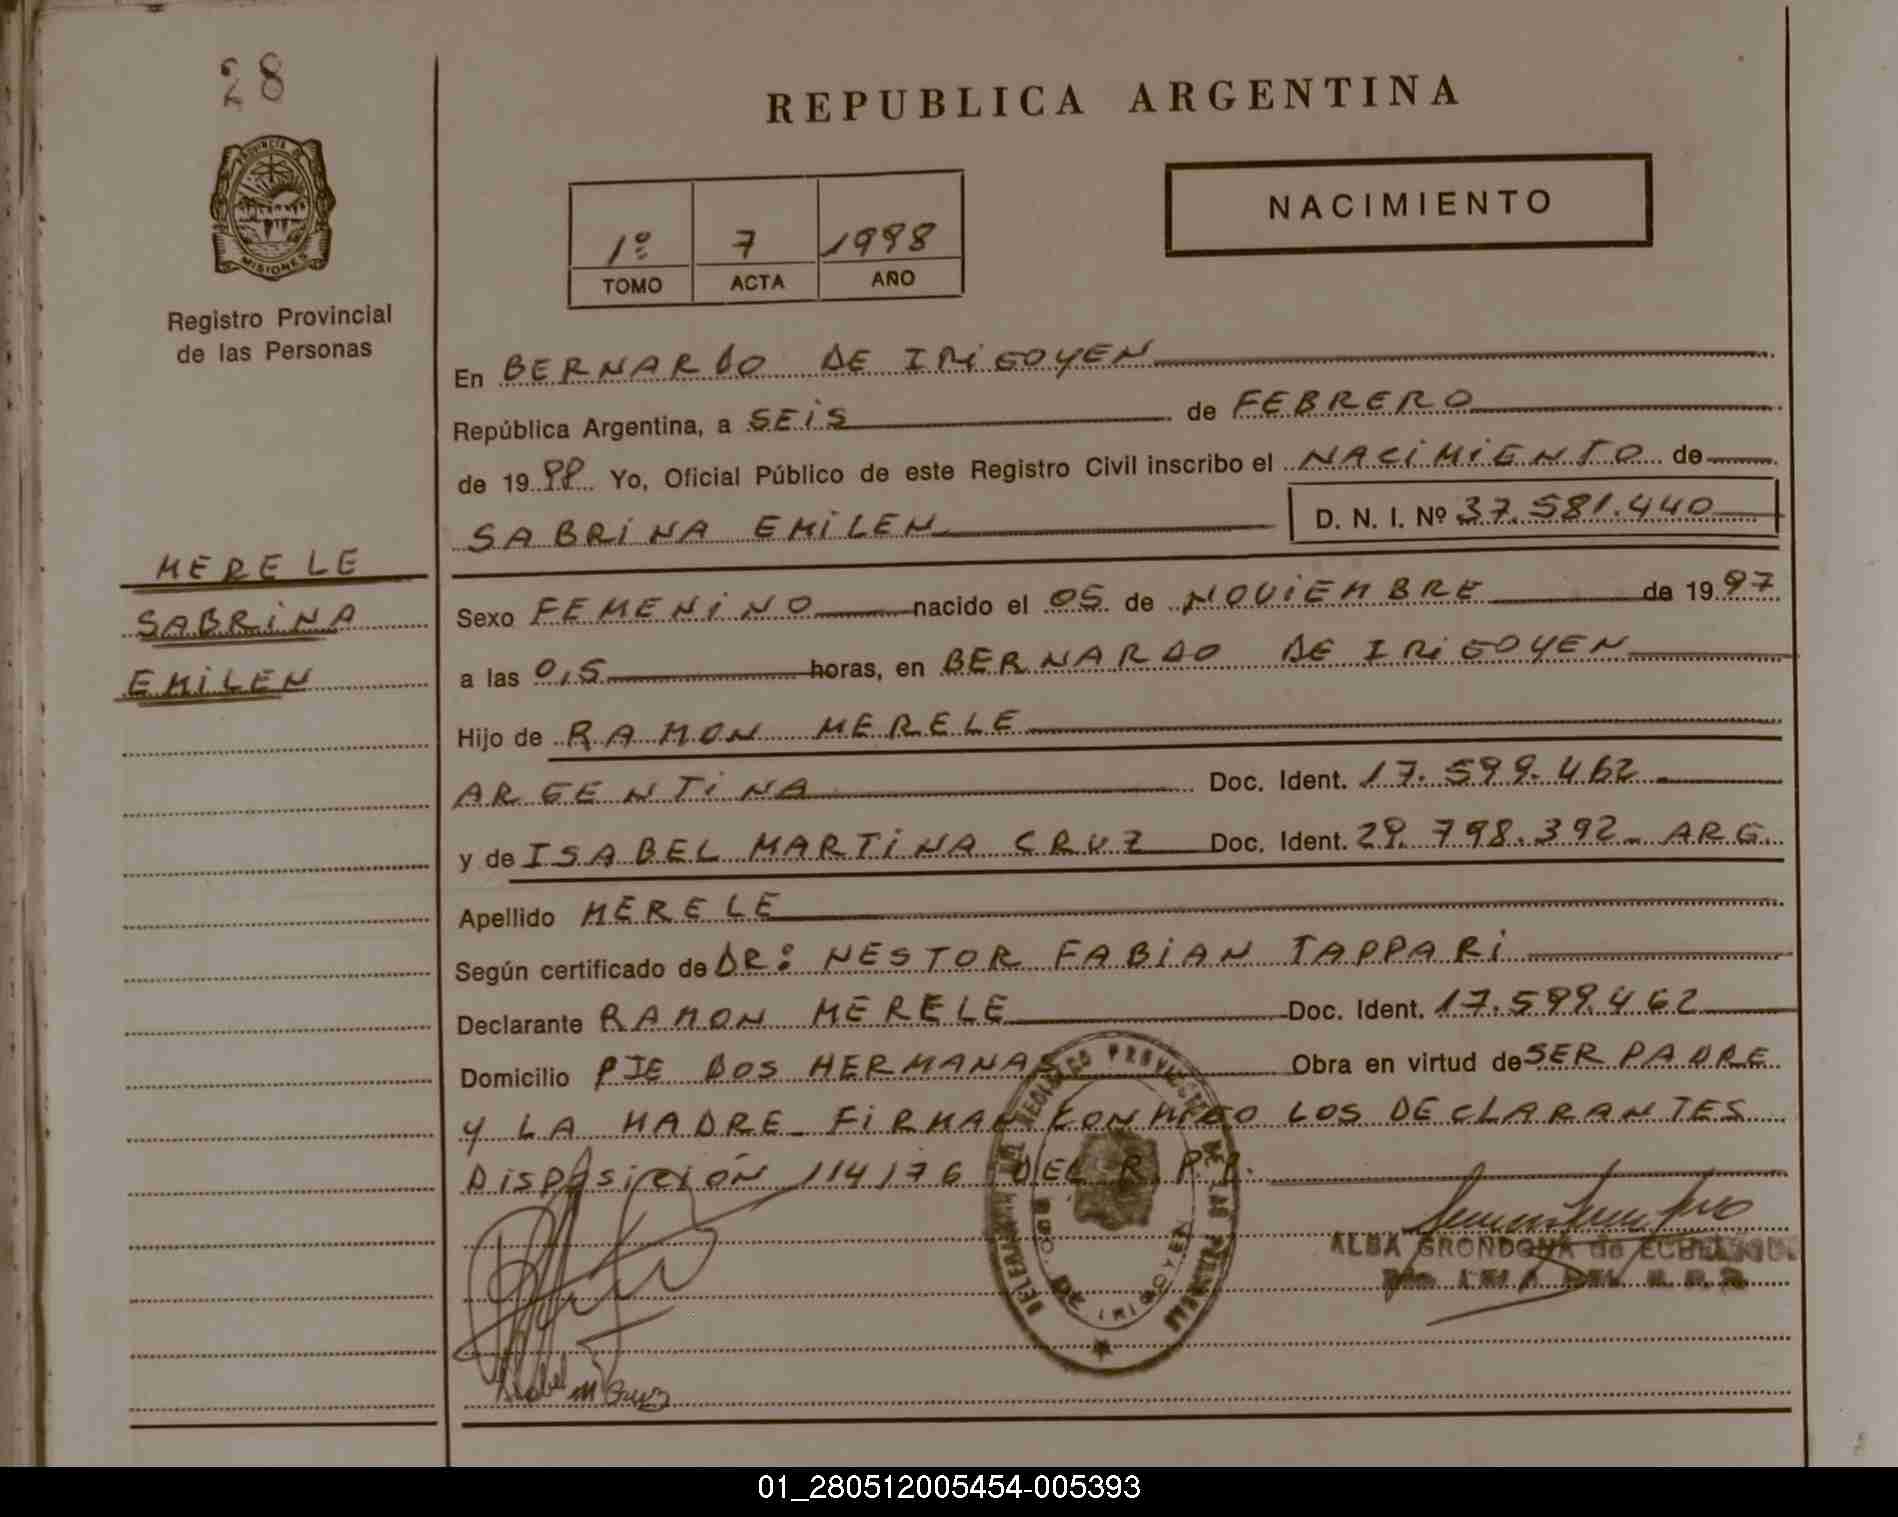 28
REPUBLICA ARGENTINA
PROVINCIA DE
MISIONES
NACIMIENTO
1º 7 1998
TOMO ACTA AÑO
Registro Provincial
de las Personas
En BERNARDO DE IRIGOYEN
República Argentina, a SEIS de FEBRERO
de 1998 Yo, Oficial Público de este Registro Civil inscribo el NACIMIENTO de
SABRINA EMILEN D. N. I. Nº 37.581.440
MERELE
SABRINA
EMILEN
Sexo FEMENINO nacido el 05 de NOVIEMBRE de 1997
a las 0,5 horas, en BERNARDO DE IRIGOYEN
Hijo de RAMON MERELE
ARGENTINA Doc. Ident. 17.599.462
y de ISABEL MARTINA CRUZ Doc. Ident. 29.798.392. ARG.
Apellido MERELE
Según certificado de DR: NESTOR FABIAN TAPPARI
Declarante RAMON MERELE Doc. Ident. 17.599.462
Domicilio PJE DOS HERMANAS Obra en virtud de SER PADRE
Y LA MADRE_ FIRMAN CONMIGO LOS DECLARANTES
DISPOSICIÓN 114/76 DEL R.P.P.
DE LAS PERSONAS
BDO. DE IRIGOYEN
ALBA GRONDONA de
Isabel M Cruz
01_280512005454-005393